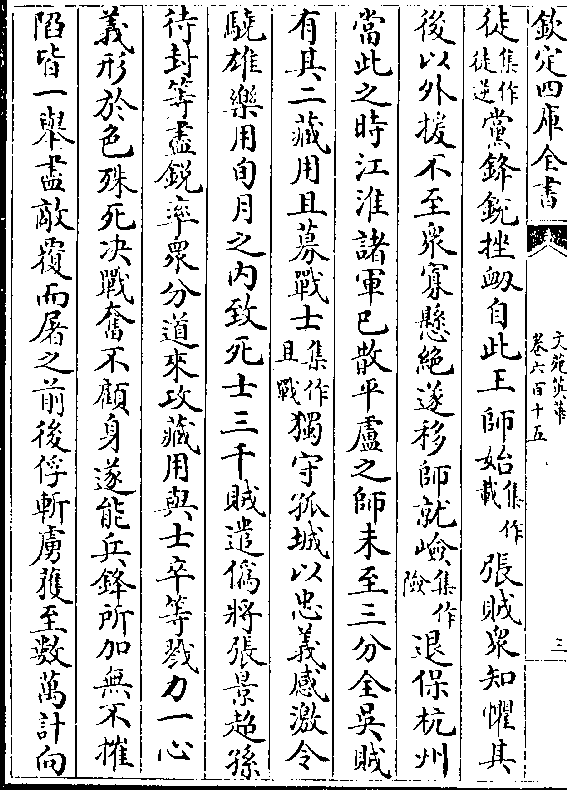 欽定四庫全書
文苑英華
卷六百十五
三
徒集作徒逆黨鋒銳挫衂自此王師始集作載張賊衆知懼其
後以外援不至衆寡懸絶遂移師就嶮集作險退保杭州
當此之時江淮諸軍已散平盧之師未至三分全吳賊
有其二藏用且募戰士集作且戰獨守孤城以忠義感激令
驍雄樂用旬月之内致死士三千賊遣僞將張景超孫
待封等盡銳率衆分道來攻藏用與士卒等戮力一心
義形於色殊死決戰奮不顧身遂能兵鋒所加無不摧
陷皆一舉盡敵覆而屠之前後俘斬虜獲至數萬計向